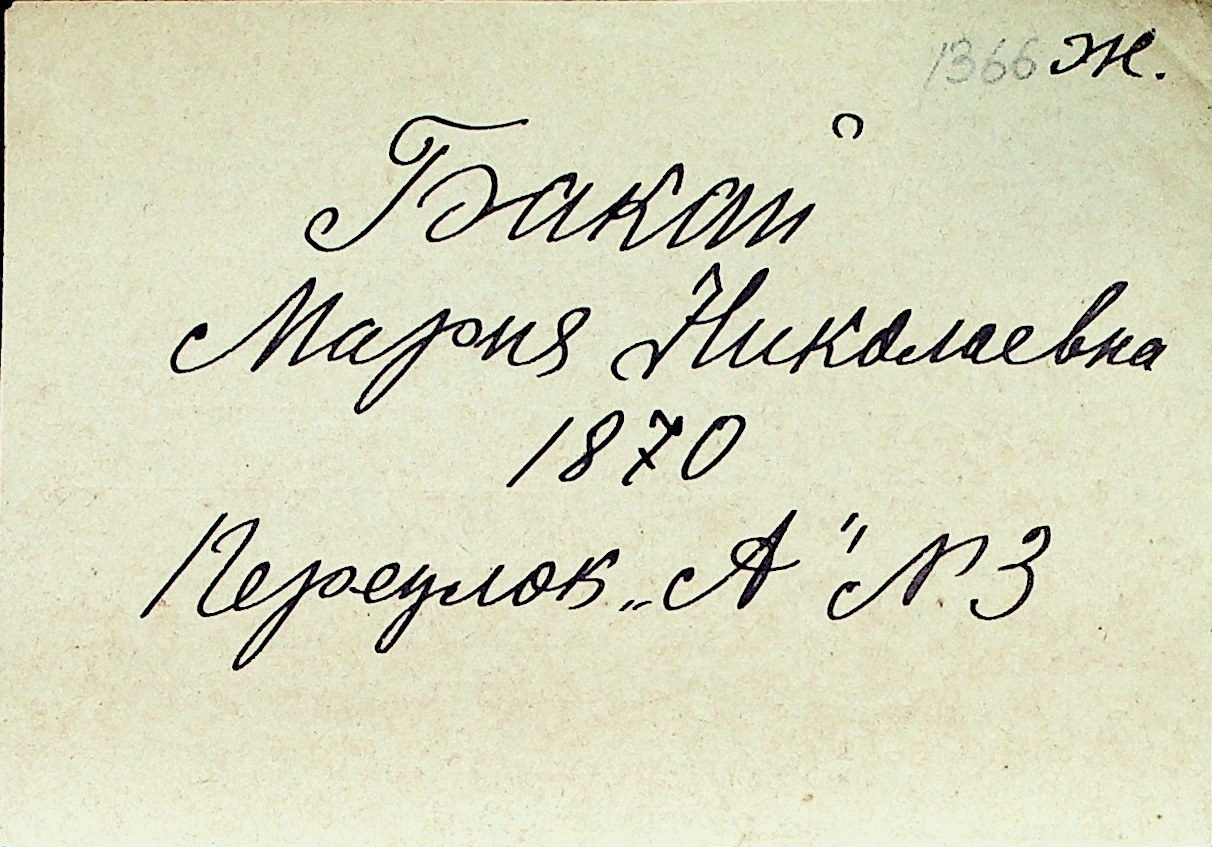 1366 ж.
Бакай
Мария Николаевна
1870
Переулок „А" № 3